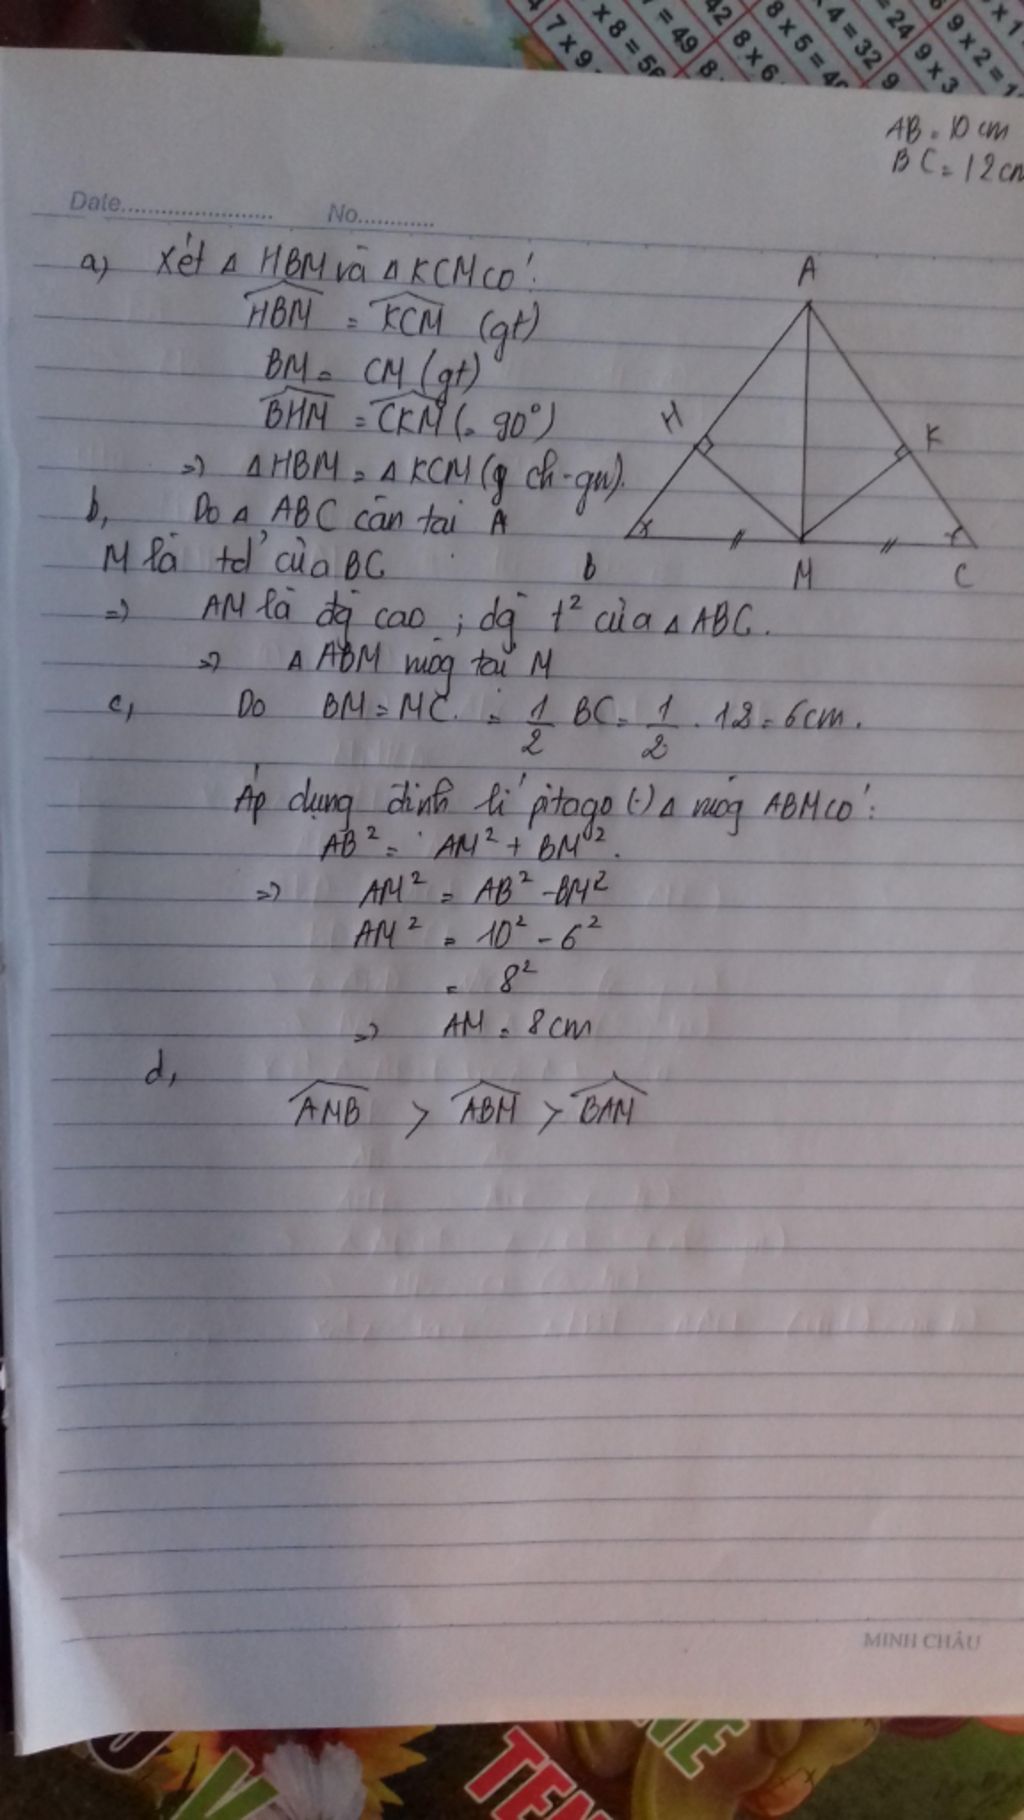 7 × 9
× 8 = 56
7 = 49
8
42
8 × 6
8 × 5 = 40
× 4 = 32
= 24
9
9 × 3
9 × 2 = 1
× 1
AB = 10 cm
BC = 12 cm
Date.................... No...........
a) Xét Δ HBM và Δ KCM có:
HBM = KCM (gt)
BM = CM (gt)
BHM = CKM (= 90°)
=> Δ HBM = Δ KCM (g ch-gn).
b, Do Δ ABC cân tại A
M là tđ của BC
=> AM là đg cao ; đg t² của Δ ABC.
=> Δ ABM vuôg tại M
c, Do BM = MC = 1/2 BC = 1/2 . 12 = 6cm.
Áp dụng định lí pitago (·) Δ vuôg ABM có:
AB² = AM² + BM².
=> AM² = AB² - BM²
AM² = 10² - 6²
= 8²
=> AM = 8cm
d,
AMB > ABM > BAM
A
H
K
B
M
C
MINH CHÂU
NE
TEN
V